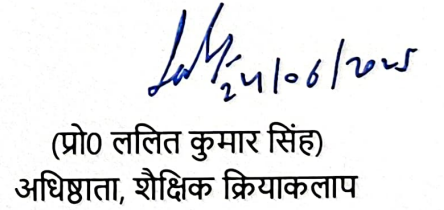 24/06/2025
(प्रो0 ललित कुमार सिंह)
अधिष्ठाता, शैक्षिक क्रियाकलाप